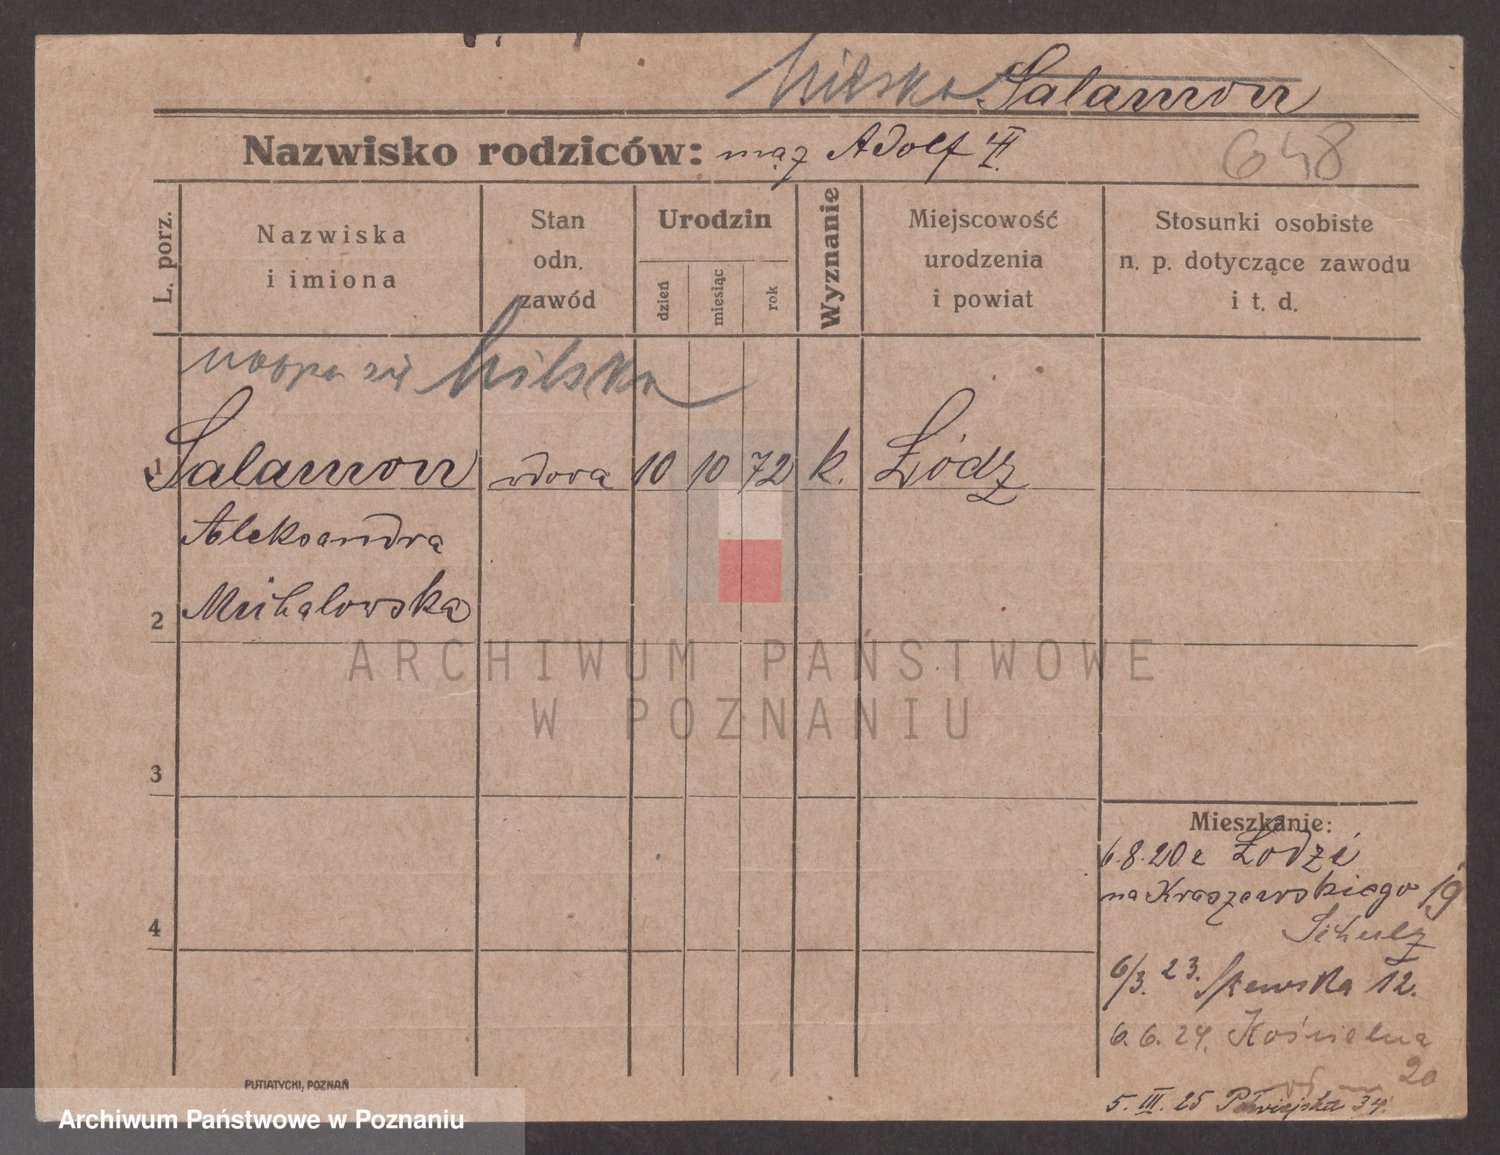 Salamon
Nazwisko rodziców: mąż Adolf
648
L. porz.
Nazwiska
i imiona
Stan
odn.
zawód
Urodzin
dzień
miesiąc
rok
Wyznanie
Miejscowość
urodzenia
i powiat
Stosunki osobiste
n. p. dotyczące zawodu
i t. d.
się
1 Salamon wdowa 10 10 72 k. Łódź
Aleksandra
2
3
4
ARCHIWUM PAŃSTWOWE
W POZNANIU
Mieszkanie:
6.8.20 z Łodzi
na Kraszewskiego 19
Schulz
6/3. 23. 12.
6.6.24. Kościelna
20
5. III. 25 Półwiejska 34.
PUTIATYCKI, POZNAŃ
Archiwum Państwowe w Poznaniu